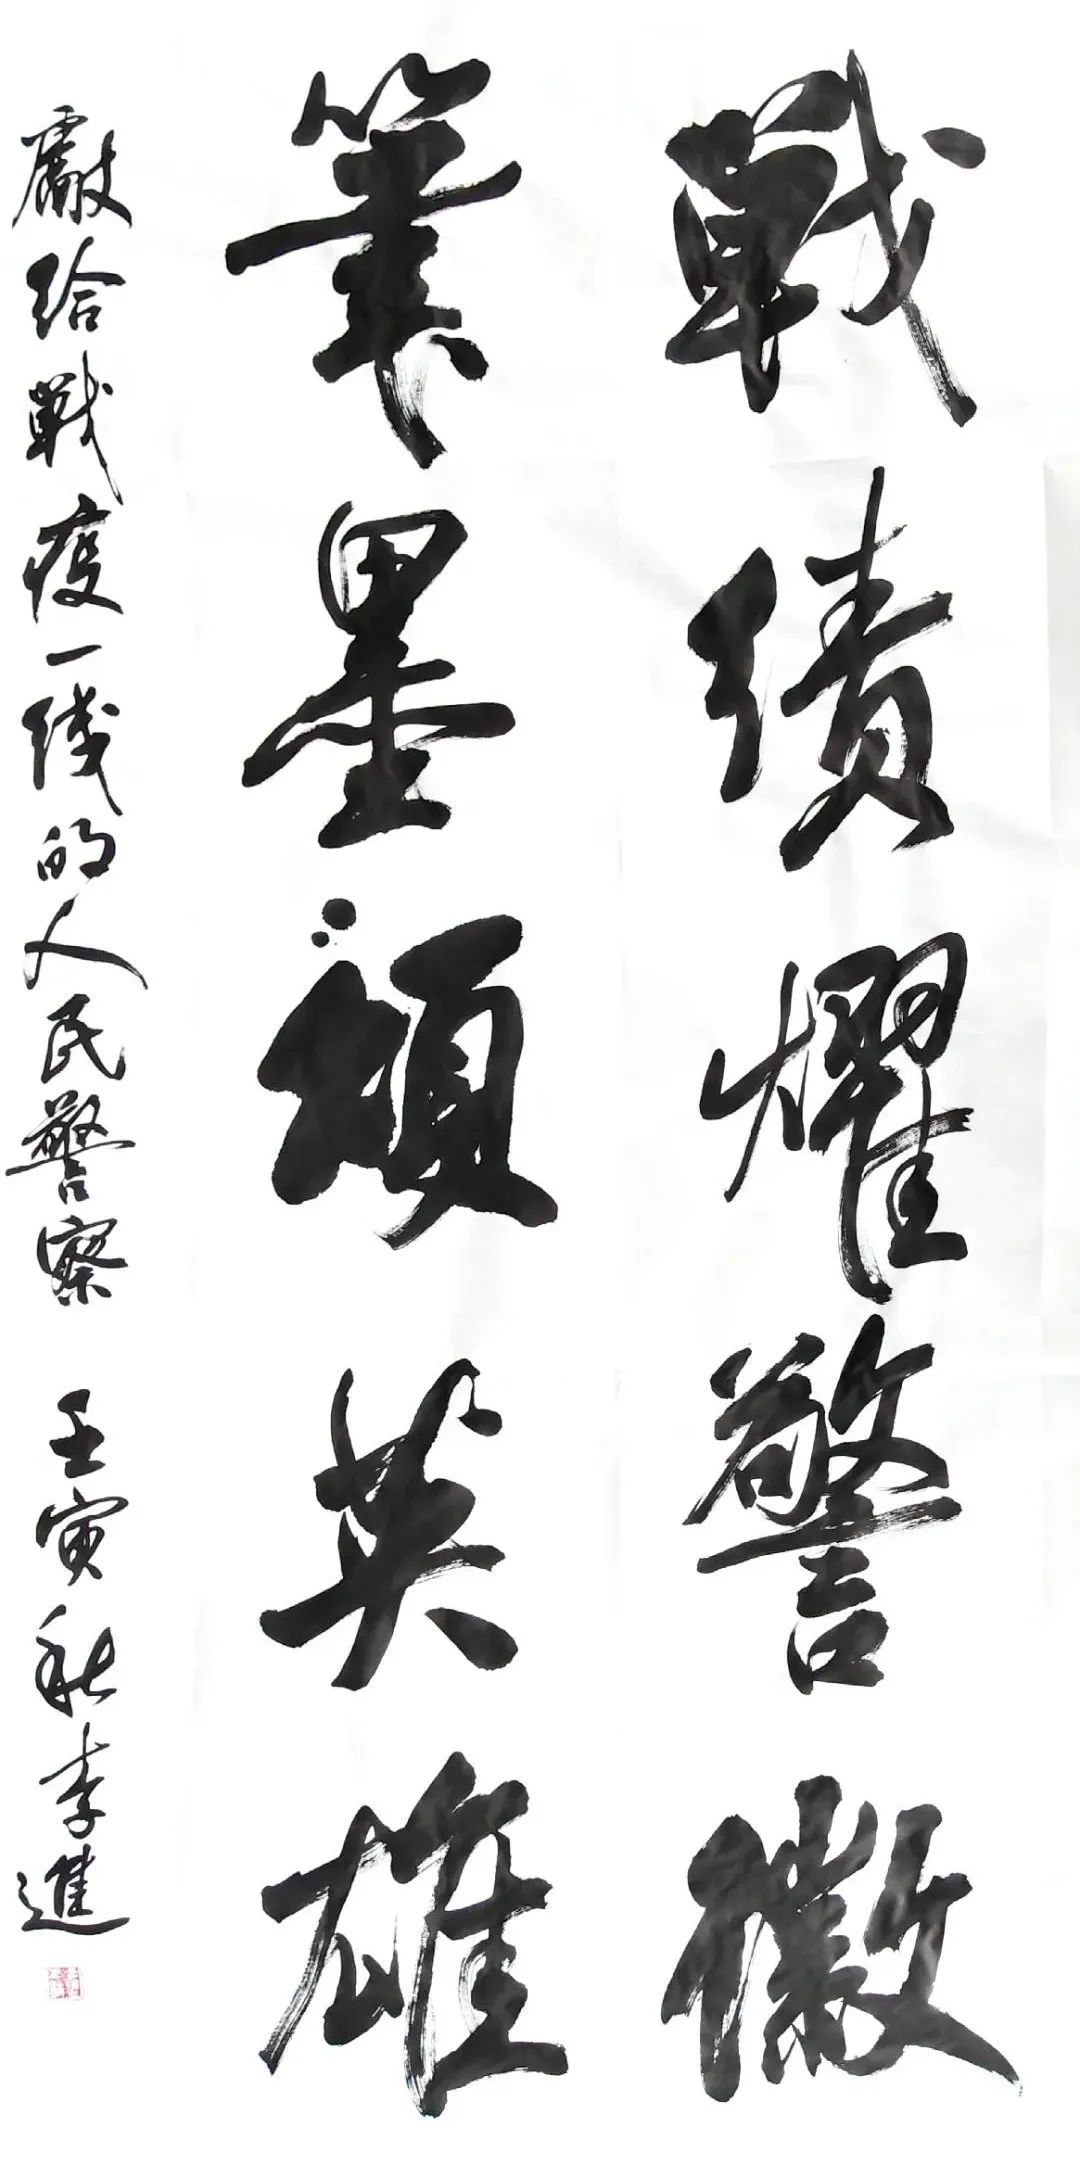 戰績耀警徽
筆墨頌英雄
獻给戰疫一线的人民警察 壬寅秋李進